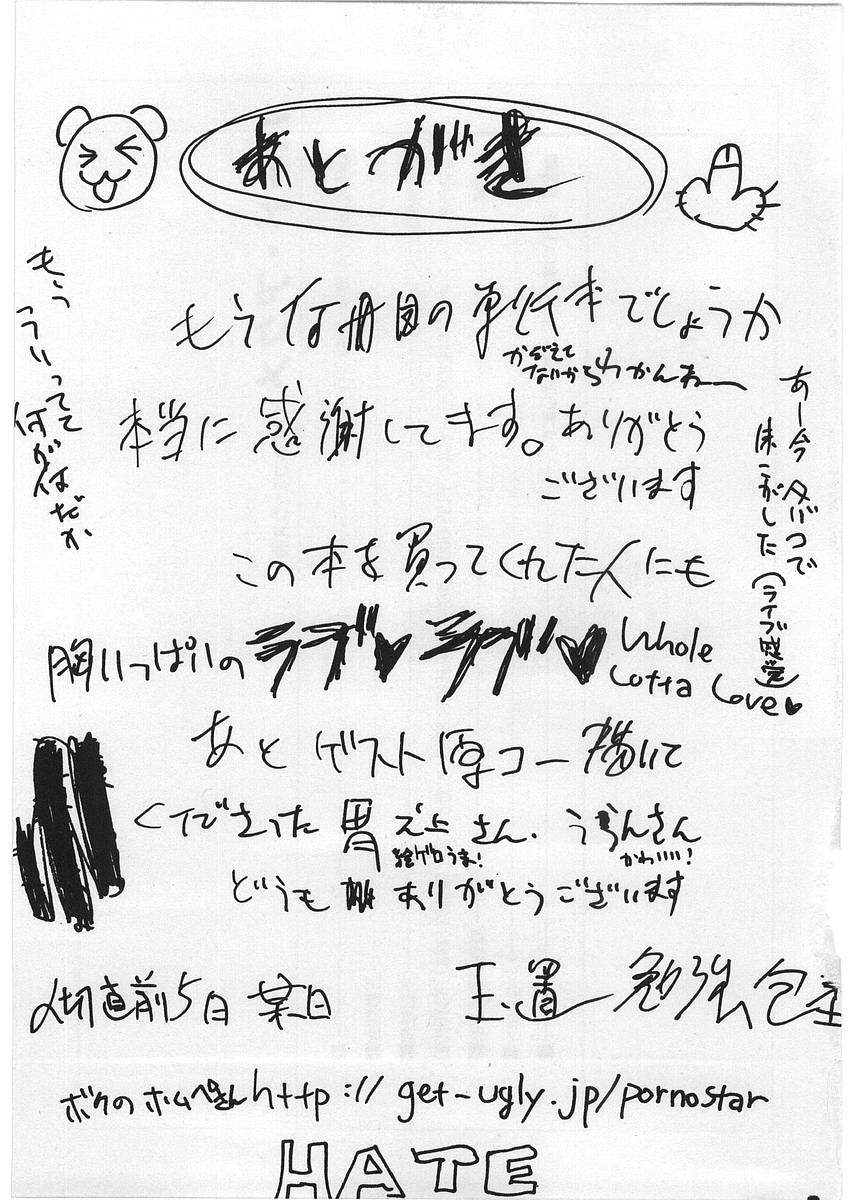 あとがき
もう何冊目の単行本でしょうか
かぞえて
ないからわかんねー
本当に感謝してます。ありがとう
ございます
この本を買ってくれた人にも
胸いっぱいのラブ♥ラブ♥
Whole
Lotta Love♥
あとゲスト原コー描いて
くださった胃之上さん、うらんさん
絵ゲロうま!
かわいい!
どうもありがとうございます
〆切直前5日 某日
玉置勉強
ボクのホムペさん http://get-ugly.jp/pornostar
HATE
もう
ついってて
何が何だか
あー今タバコで
床こがした(ライブ感覚)